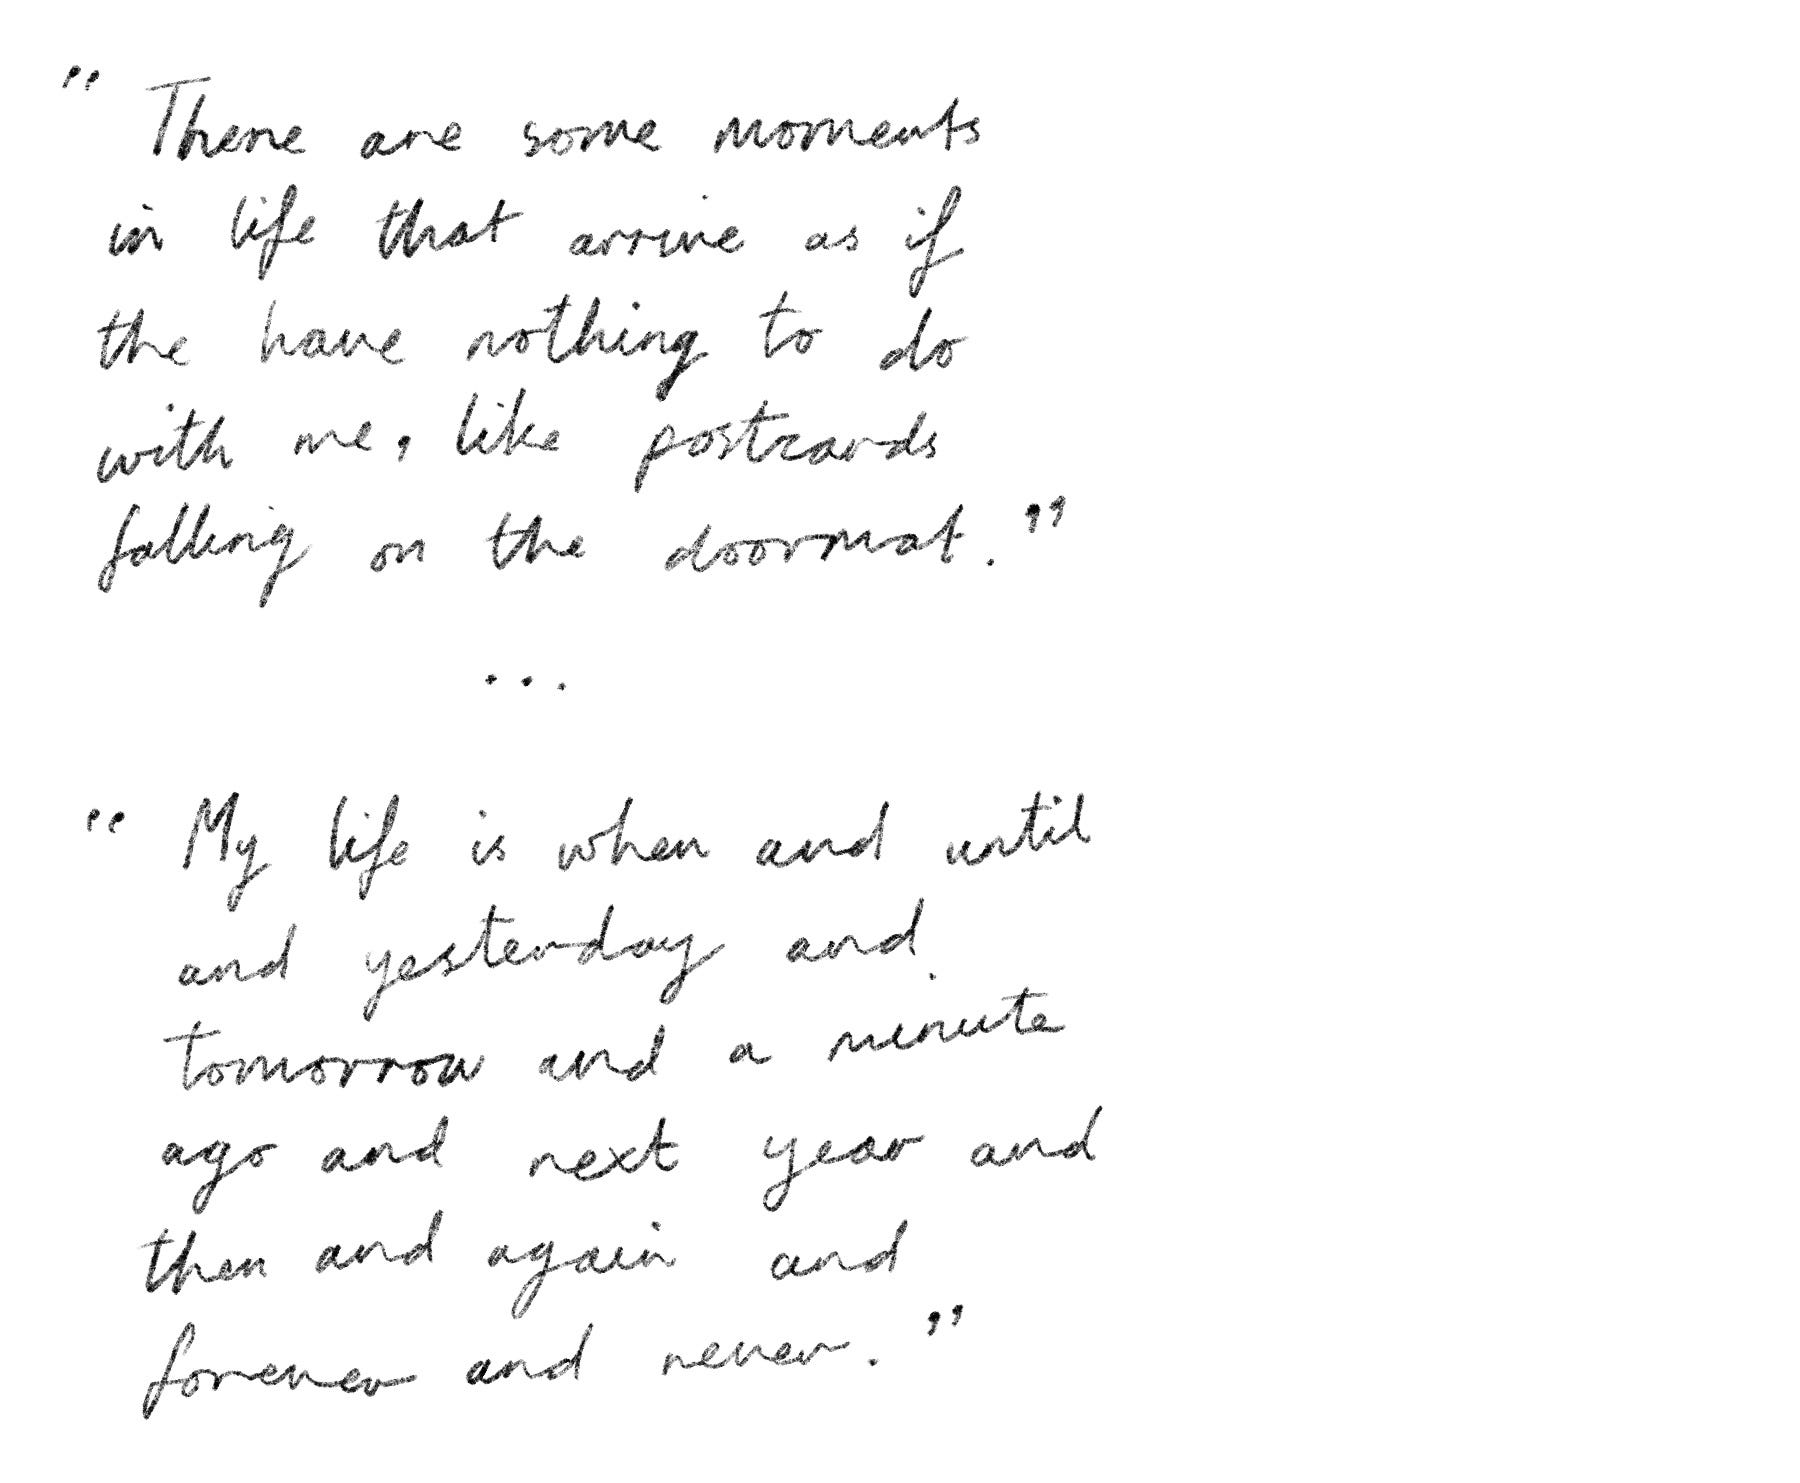 “There are some moments
in life that arrive as if
the have nothing to do
with me, like postcards
falling on the doormat.”
...
“My life is when and until
and yesterday and
tomorrow and a minute
ago and next year and
then and again and
forever and never.”